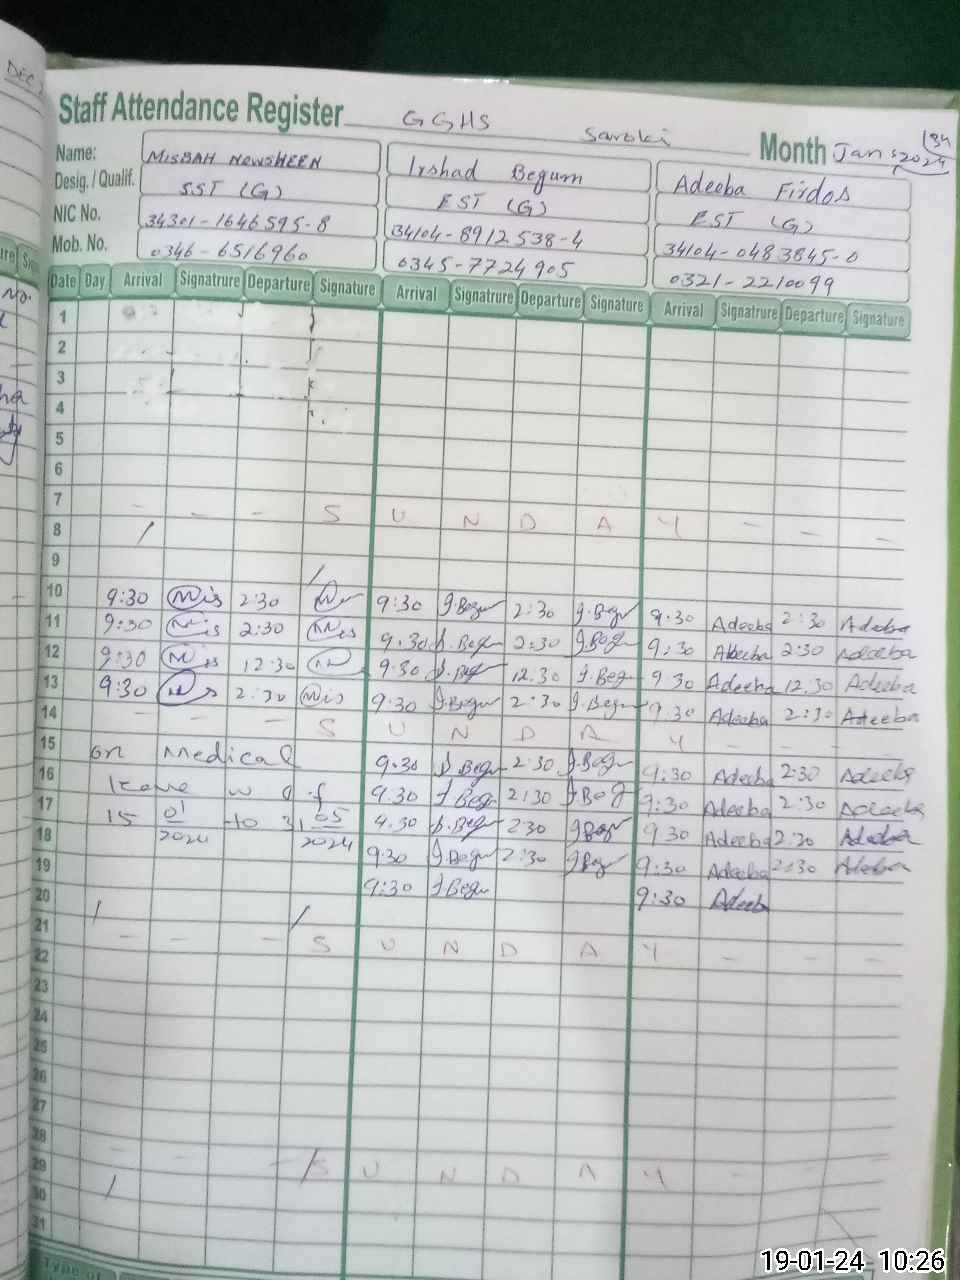 DEC
Staff Attendance Register GGHS Saroki Month Jan, 2024
Name: MISBAH NOWSHEEN Irshad Begum Adeeba Firdos
Desig. / Qualif. SST (G) EST (G) EST (G)
NIC No. 34301-1646595-8 34104-8912538-4 34104-0483845-0
Mob. No. 0346-6516960 0345-7724905 0321-2210099
Date Day Arrival Signatrure Departure Signature Arrival Signatrure Departure Signature Arrival Signatrure Departure Signature
1
2
3
4
5
6
7 - - - S U N D A Y - - -
8
9
10 9:30 Mis 2:30 9:30 I.Begum 2:30 I.Begum 9.30 Adeeba 2:30 Adeeba
11 9:30 Mis 2:30 Mis 9.30 I.Begum 2:30 I.Begum 9:30 Adeeba 2:30 Adeeba
12 9:30 Mis 12.30 9:30 I.Begum 12.30 I.Begum 9.30 Adeeba 12.30 Adeeba
13 9:30 Mis 2:30 Mis 9.30 I.Begum 2:30 I.Begum 9.30 Adeeba 2:30 Adeeba
14 - - - S U N D A Y - - -
15 on Medical 9.30 I.Begum 2:30 I.Begum 9:30 Adeeba 2:30 Adeeba
16 leave w e f 9.30 I.Begum 2:30 I.Beg 9:30 Adeeba 2:30 Adeeba
17 15 01 to 31 05 9.30 I.Begum 2:30 I.Begum 9 30 Adeeba 2:30 Adeeba
18 2024 2024 9:30 I.Begum 2:30 I.Beg 9:30 Adeeba 2:30 Adeeba
19 9:30 I.Begum 9:30 Adeeba
20
21 - - - S U N D A Y - - -
22
23
24
25
26
27
28 - - - S U N D A Y - - -
29
30
31
Type of
19-01-24 10:26